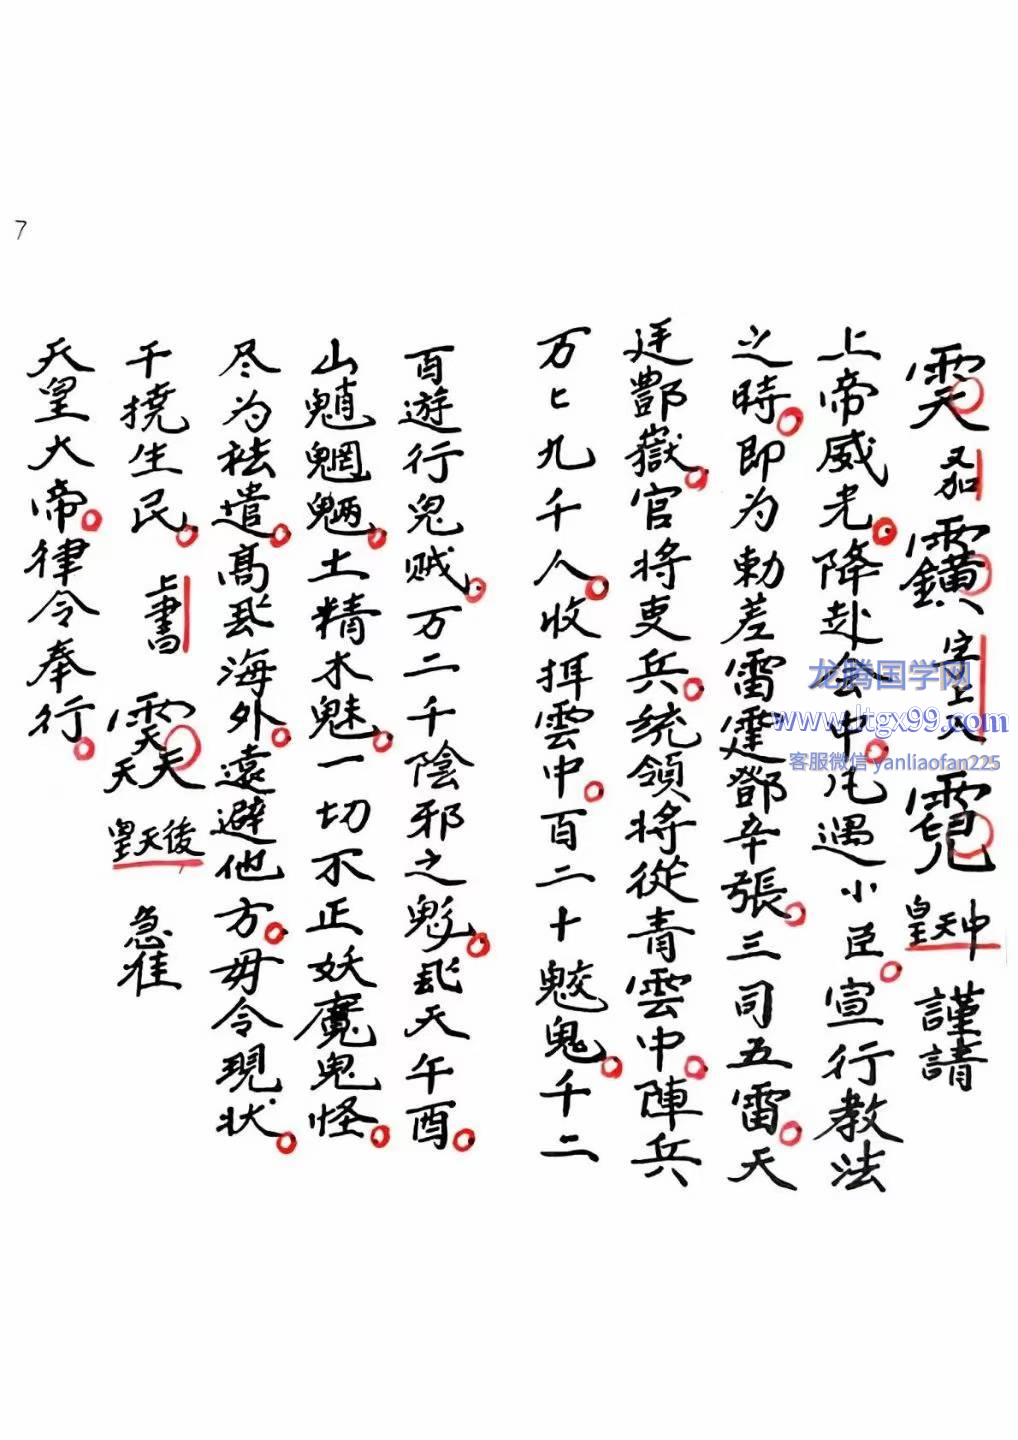 7
謹請
上帝威光降赴会中凢遇小臣宣行教法
之時即为勅差雷霆鄧辛張三司五雷天
廷酆嶽官将吏兵统領将從青雲中陣兵
万七九千人收雲中百二十魆鬼千二
百遊行鬼贼万二千陰邪之鬽飛天午酉
山魈魍魎土精水魅一切不正妖魔鬼怪
尽为祛遣高飛海外遠避他方毋令現状
干撓生民 上書 皇天後 急准
天皇大帝律令奉行
龙腾国学网
www.ltgx99.com
客服微信 yanliaofan225